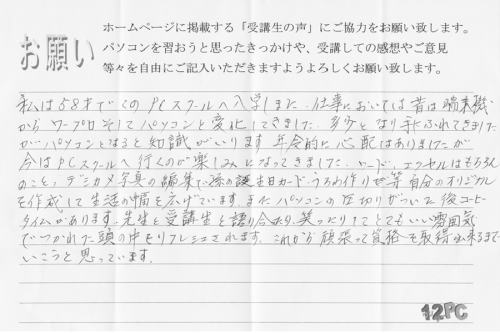 お願い
ホームページに掲載する「受講生の声」にご協力をお願い致します。
パソコンを習おうと思ったきっかけや、受講しての感想やご意見
等々を自由にご記入いただきますようよろしくお願い致します。
私は58才でくのPCスクールへ入学しました。仕事においては昔は端末機
からワープロそしてパソコンと変化してきました。多少となり手にふれてきました
がパソコンとなると知識がいります。年令的に心配はありましたが
今はPCスクールへ行くのが楽しみになってきました。ワード、エクセルはもちろん
のこと、デジカメ写真の編集で孫の誕生日カード、うちわ作り等自分のオリジナル
を作成して生活の幅を広げています。またパソコンの区切りがついた後コーヒー
タイムがあります。先生と受講生と語り合ったり、笑ったりしてとてもいい雰囲気
でつかれた頭の中もリフレッシュされます。これから頑張って資格を取得出来るまで
いこうと思っています。
12PC